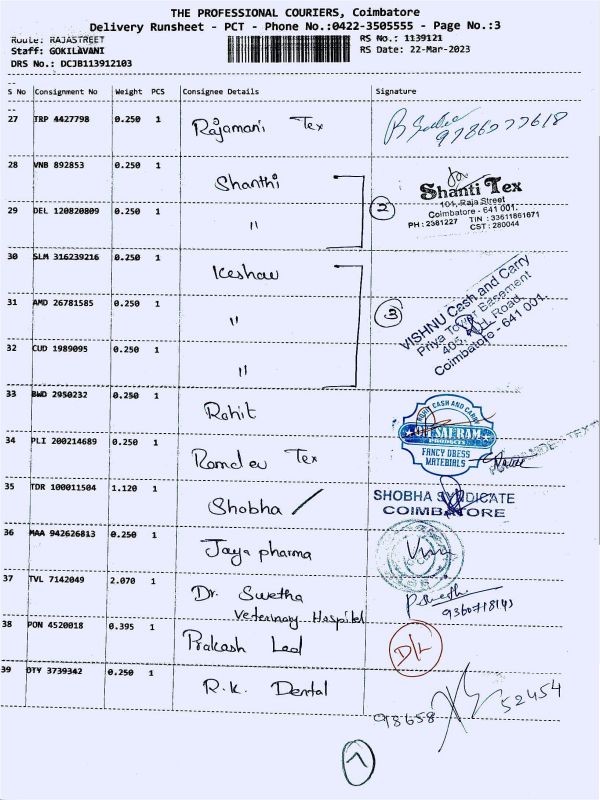 THE PROFESSIONAL COURIERS, Coimbatore
Delivery Runsheet - PCT - Phone No.:0422-3505555 - Page No.:3
Route: RAJASTREET
Staff: GOKILAVANI
DRS No.: DCJB113912103
RS No.: 1139121
RS Date: 22-Mar-2023
S No Consignment No Weight PCS Consignee Details Signature
27 TRP 4427798 0.250 1 Rajamani Tex 9786277618
28 VNB 892853 0.250 1 Shanthi
29 DEL 120820809 0.250 1 "
2
Shanti Tex
101, Raja Street
Coimbatore - 641 001.
PH : 2381227 TIN : 33611861671
CST : 280044
30 SLM 316239216 0.250 1 Keshav
31 AMD 26781585 0.250 1 "
32 CUD 1989095 0.250 1 "
3
VISHNU Cash and Carry
Priya Tower Basement
Road,
Coimbatore - 641 001.
33 BWD 2950232 0.250 1 Rohit
CASH AND CARRY
OM SAI RAM
PRODUCTS
FANCY DRESS
MATERIALS
34 PLI 200214689 0.250 1 Ramdev Tex
35 TDR 100011504 1.120 1 Shobha
SHOBHA SYNDICATE
COIMBATORE
36 MAA 942626813 0.250 1 Jaya pharma
37 TVL 7142049 2.070 1 Dr. Swetha
Veterinary Hospital
9360718143
38 PON 4520018 0.395 1 Prakash Lad
D/L
39 OTY 3739342 0.250 1 R.K. Dental
98658 52454